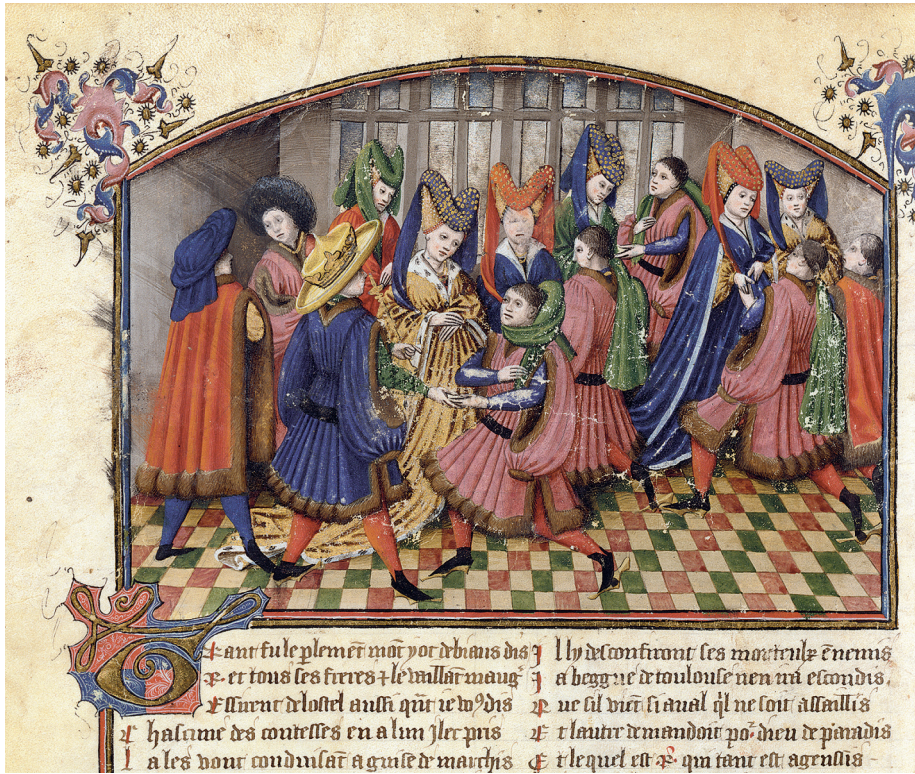 GRant fu le plemēt mōt y ot de biaus dis
R. et tous ses freres ⁊ le vaillāt maug̾
Essirent de lostel aussi qūt ie voꝯ dis
C hascune des contesses en a lun Jlec pris
L a les vont conduisāt a guise de marchis
J l ly desconfiront ses morteulx ēnemis
J a beggue de toulouse nen na escondis.
Q ue sil viēt si aual ql̄ ne soit assaillis
E t lautre demandoit poᷣ dieu de paradis
E t lequel est .R. qui tant est agensiis